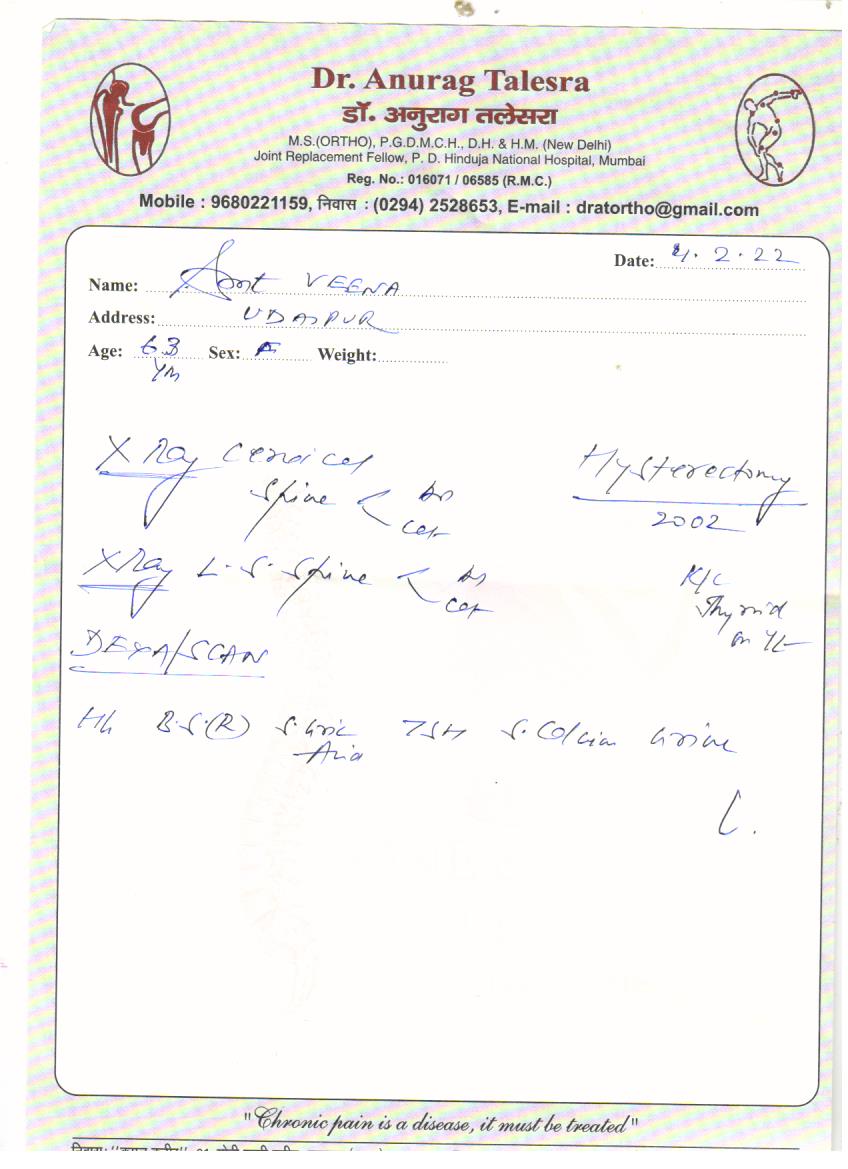 Dr. Anurag Talesra
डॉ. अनुराग तलेसरा
M.S.(ORTHO), P.G.D.M.C.H., D.H. & H.M. (New Delhi)
Joint Replacement Fellow, P. D. Hinduja National Hospital, Mumbai
Reg. No.: 016071 / 06585 (R.M.C.)
Mobile : 9680221159, निवास : (0294) 2528653, E-mail : dratortho@gmail.com
Date: 4.2.22
Name: Smt VEENA
Address: UDAIPUR
Age: 63 Yrs Sex: F Weight:
X Ray Cervical
Spine < AP
Lat
Hysterectomy
2002
X Ray L.S. Spine < AP
Lat
K/C
Thyroid
on
DEXA/SCAN
Hb B.S.(R) S.Uric TSH S.Calcium Urine
Acid
"Chronic pain is a disease, it must be treated"